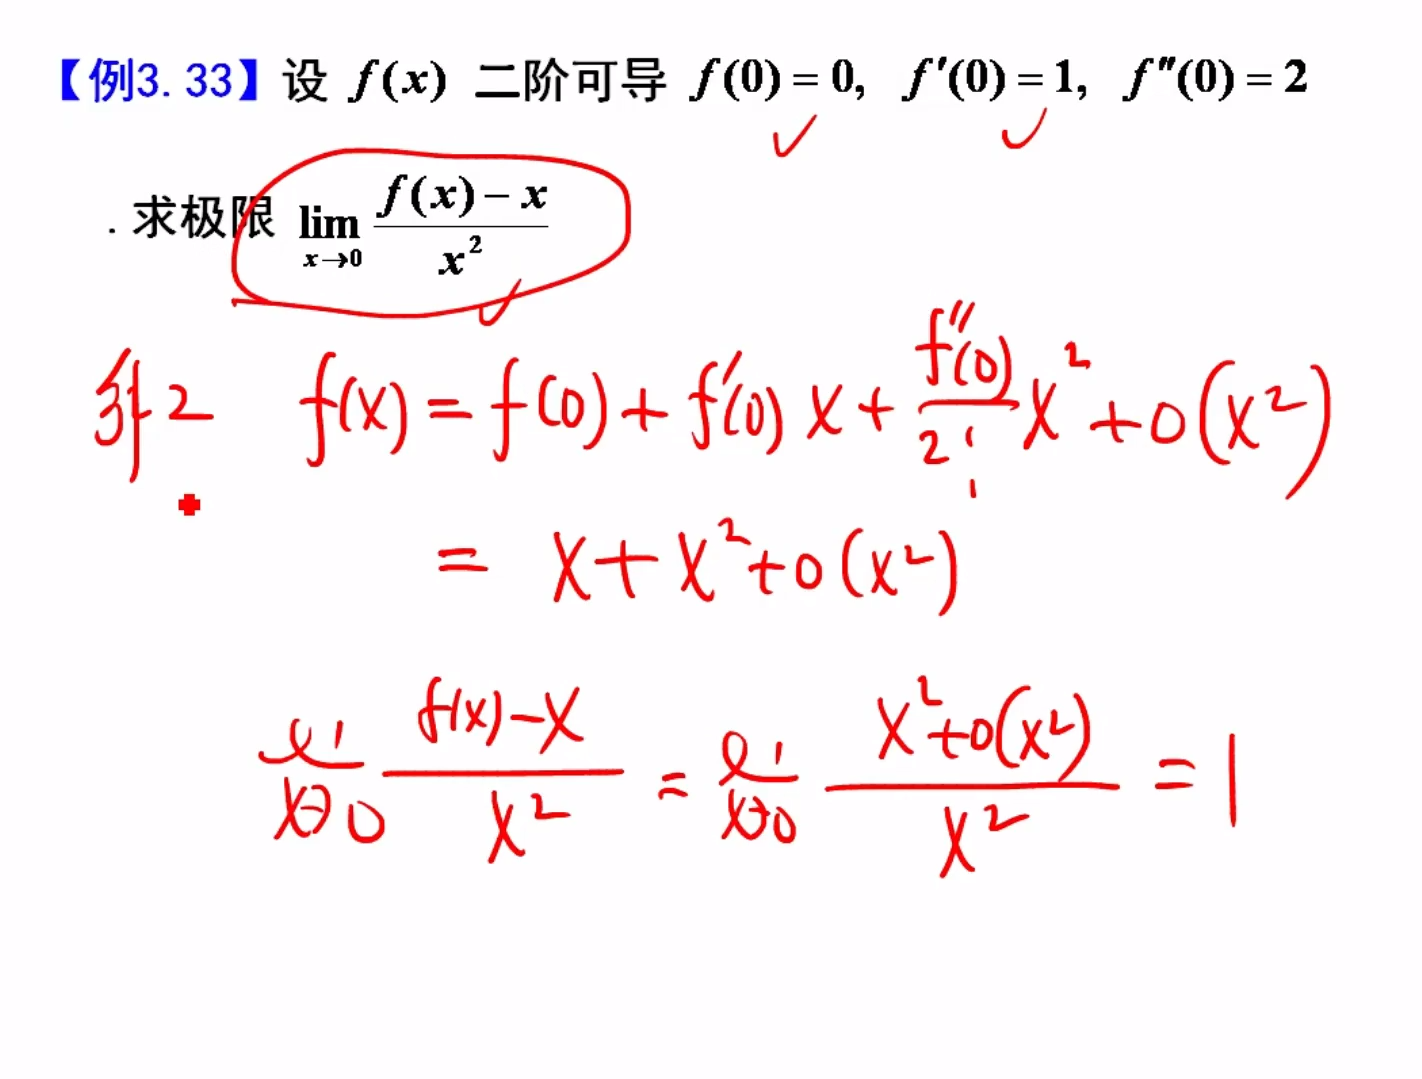 【例3.33】设 f(x) 二阶可导 f(0) = 0, f'(0) = 1, f''(0) = 2
. 求极限 lim x→0 (f(x) − x)/x²
2 f(x) = f(0) + f'(0) x + f''(0)/2! x² + o(x²)
= x + x² + o(x²)
lim x→0 (f(x) − x)/x² = lim x→0 (x² + o(x²))/x² = 1